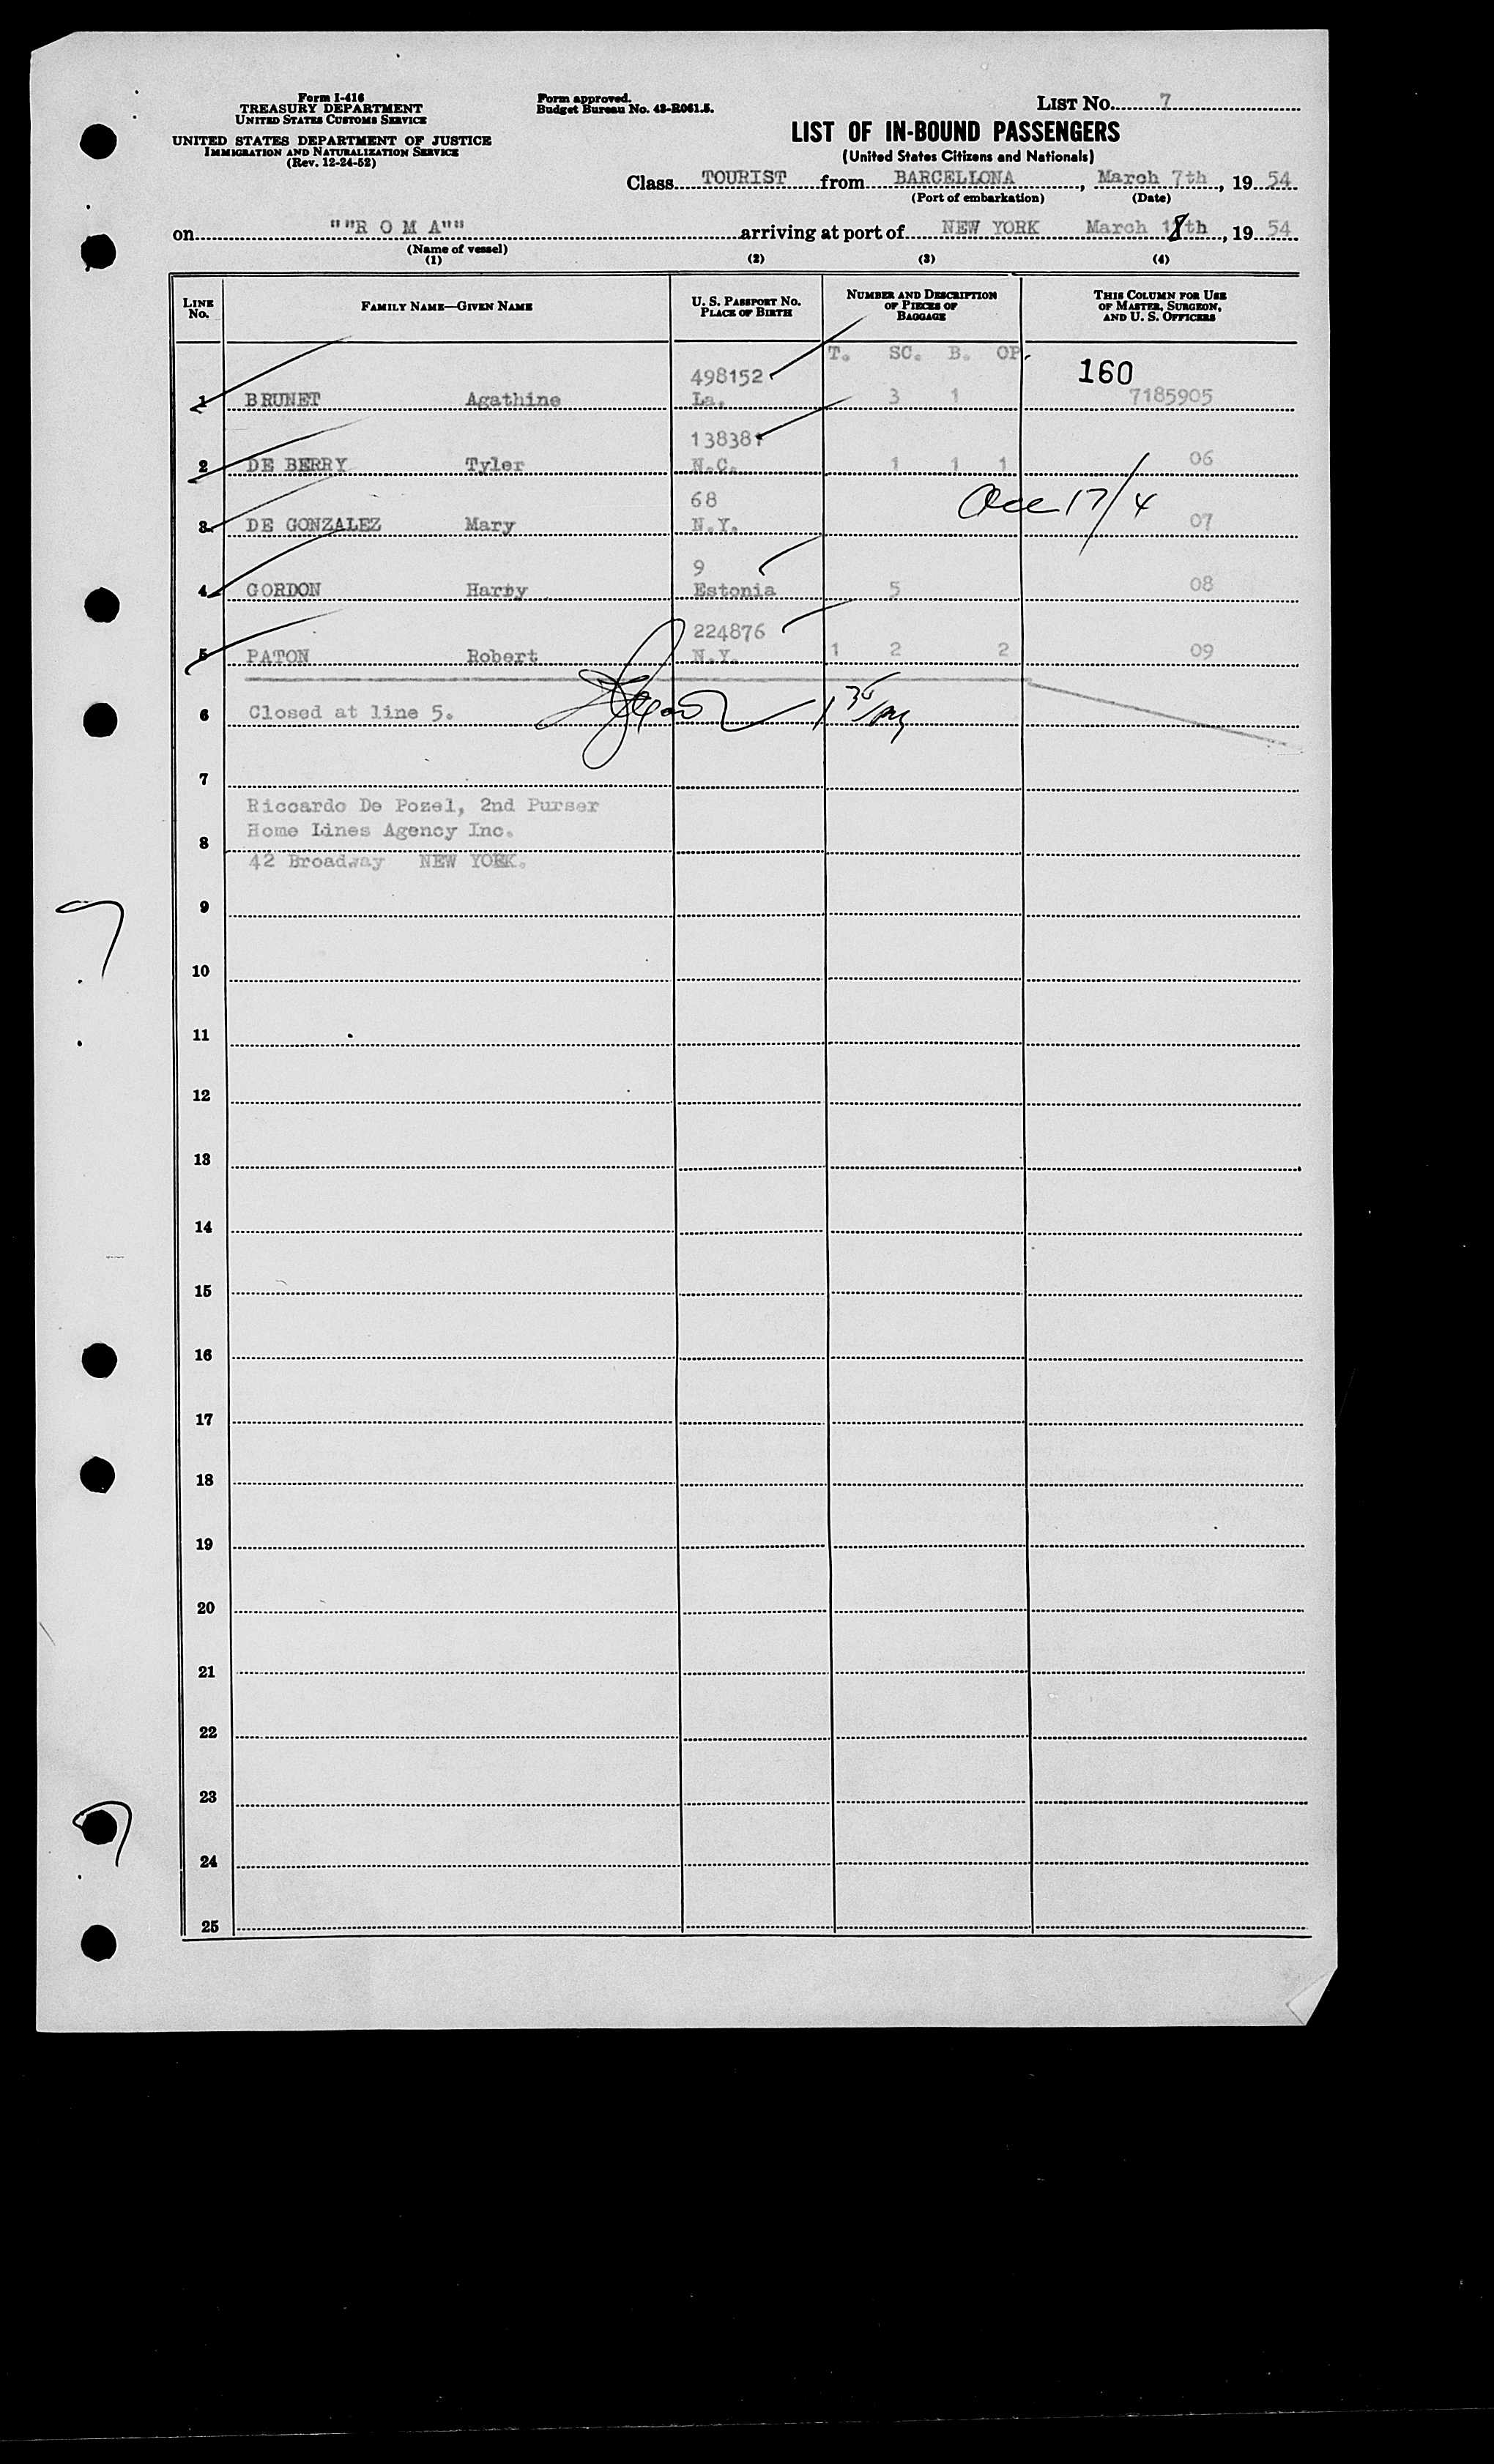 Form I-416
TREASURY DEPARTMENT
UNITED STATES CUSTOMS SERVICE
UNITED STATES DEPARTMENT OF JUSTICE
IMMIGRATION AND NATURALIZATION SERVICE
(Rev. 12-24-52)
Form approved.
Budget Bureau No. 43-R061.5.
LIST No. 7
LIST OF IN-BOUND PASSENGERS
(United States Citizens and Nationals)
Class TOURIST from BARCELLONA, March 7th, 19 54
(Port of embarkation) (Date)
on ""R O M A"" arriving at port of NEW YORK March 18th, 19 54
(Name of vessel)
(1) (2) (3) (4)
LINE No. FAMILY NAME—GIVEN NAME U. S. PASSPORT NO. PLACE OF BIRTH NUMBER AND DESCRIPTION OF PIECES OF BAGGAGE THIS COLUMN FOR USE OF MASTER, SURGEON, AND U. S. OFFICERS
T. SC. B. OP.
498152 160
1 BRUNET Agathine La. 3 1 7185905
138381
2 DE BERRY Tyler N.C. 1 1 1 06
68 17/4
3 DE GONZALEZ Mary N.Y. 07
9
4 GORDON Harry Estonia 5 08
224876
5 PATON Robert N.Y. 1 2 2 09
6 Closed at line 5.
7
Riccardo De Pozel, 2nd Purser
Home Lines Agency Inc.
8
42 Broadway NEW YORK.
9
7
10
11
12
13
14
15
16
17
18
19
20
21
22
23
7
24
25